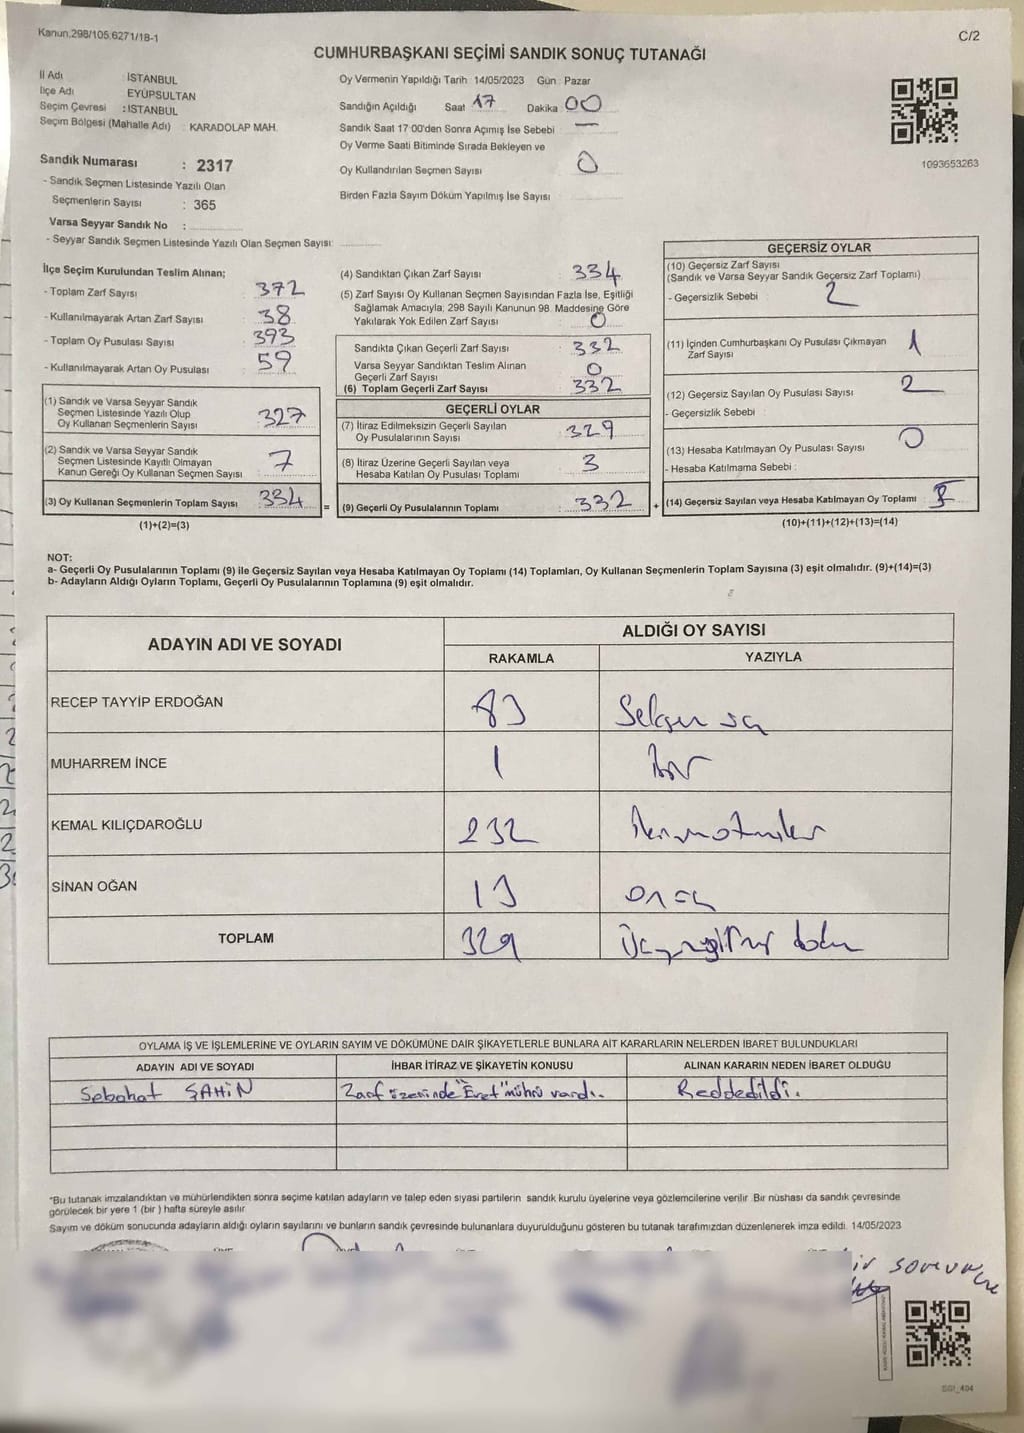 Kanun.298/105.6271/18-1
C/2
CUMHURBAŞKANI SEÇİMİ SANDIK SONUÇ TUTANAĞI
İl Adı : İSTANBUL
İlçe Adı : EYÜPSULTAN
Seçim Çevresi : İSTANBUL
Seçim Bölgesi (Mahalle Adı) : KARADOLAP MAH.
Sandık Numarası : 2317
- Sandık Seçmen Listesinde Yazılı Olan
Seçmenlerin Sayısı : 365
Varsa Seyyar Sandık No :
- Seyyar Sandık Seçmen Listesinde Yazılı Olan Seçmen Sayısı:
Oy Vermenin Yapıldığı Tarih : 14/05/2023 Gün : Pazar
Sandığın Açıldığı Saat 17 Dakika 00
Sandık Saat 17:00'den Sonra Açımış İse Sebebi : —
Oy Verme Saati Bitiminde Sırada Bekleyen ve
Oy Kullandırılan Seçmen Sayısı : 0
Birden Fazla Sayım Döküm Yapılmış İse Sayısı :
1093653263
İlçe Seçim Kurulundan Teslim Alınan;
- Toplam Zarf Sayısı : 372
- Kullanılmayarak Artan Zarf Sayısı : 38
- Toplam Oy Pusulası Sayısı : 393
- Kullanılmayarak Artan Oy Pusulası : 59
(1) Sandık ve Varsa Seyyar Sandık
Seçmen Listesinde Yazılı Olup
Oy Kullanan Seçmenlerin Sayısı : 327
(2) Sandık ve Varsa Seyyar Sandık
Seçmen Listesinde Kayıtlı Olmayan
Kanun Gereği Oy Kullanan Seçmen Sayısı : 7
(3) Oy Kullanan Seçmenlerin Toplam Sayısı : 334
(1)+(2)=(3)
=
(4) Sandıktan Çıkan Zarf Sayısı : 334
(5) Zarf Sayısı Oy Kullanan Seçmen Sayısından Fazla İse, Eşitliği
Sağlamak Amacıyla; 298 Sayılı Kanunun 98. Maddesine Göre
Yakılarak Yok Edilen Zarf Sayısı : 0
Sandıkta Çıkan Geçerli Zarf Sayısı : 332
Varsa Seyyar Sandıktan Teslim Alınan
Geçerli Zarf Sayısı : 0
(6) Toplam Geçerli Zarf Sayısı : 332
GEÇERLİ OYLAR
(7) İtiraz Edilmeksizin Geçerli Sayılan
Oy Pusulalarının Sayısı : 329
(8) İtiraz Üzerine Geçerli Sayılan veya
Hesaba Katılan Oy Pusulası Toplamı : 3
(9) Geçerli Oy Pusulalarının Toplamı : 332
+
GEÇERSİZ OYLAR
(10) Geçersiz Zarf Sayısı
(Sandık ve Varsa Seyyar Sandık Geçersiz Zarf Toplamı) : 2
- Geçersizlik Sebebi :
(11) İçinden Cumhurbaşkanı Oy Pusulası Çıkmayan
Zarf Sayısı : 1
(12) Geçersiz Sayılan Oy Pusulası Sayısı : 2
- Geçersizlik Sebebi :
(13) Hesaba Katılmayan Oy Pusulası Sayısı : 0
- Hesaba Katılmama Sebebi :
(14) Geçersiz Sayılan veya Hesaba Katılmayan Oy Toplamı :
(10)+(11)+(12)+(13)=(14)
NOT:
a- Geçerli Oy Pusulalarının Toplamı (9) ile Geçersiz Sayılan veya Hesaba Katılmayan Oy Toplamı (14) Toplamları, Oy Kullanan Seçmenlerin Toplam Sayısına (3) eşit olmalıdır. (9)+(14)=(3)
b- Adayların Aldığı Oyların Toplamı, Geçerli Oy Pusulalarının Toplamına (9) eşit olmalıdır.
ADAYIN ADI VE SOYADI
ALDIĞI OY SAYISI
RAKAMLA YAZIYLA
RECEP TAYYİP ERDOĞAN 83
MUHARREM İNCE 1 bir
KEMAL KILIÇDAROĞLU 232
SİNAN OĞAN 13
TOPLAM 329
OYLAMA İŞ VE İŞLEMLERİNE VE OYLARIN SAYIM VE DÖKÜMÜNE DAİR ŞİKAYETLERLE BUNLARA AİT KARARLARIN NELERDEN İBARET BULUNDUKLARI
ADAYIN ADI VE SOYADI İHBAR İTİRAZ VE ŞİKAYETİN KONUSU ALINAN KARARIN NEDEN İBARET OLDUĞU
Sebahat ŞAHİN Zarf üzerinde "Evet" mührü vardı. Reddedildi.
"Bu tutanak imzalandıktan ve mühürlendikten sonra seçime katılan adayların ve talep eden siyasi partilerin sandık kurulu üyelerine veya gözlemcilerine verilir. Bir nüshası da sandık çevresinde
görülecek bir yere 1 (bir) hafta süreyle asılır.
Sayım ve döküm sonucunda adayların aldığı oyların sayılarını ve bunların sandık çevresinde bulunanlara duyurulduğunu gösteren bu tutanak tarafımızdan düzenlenerek imza edildi. 14/05/2023